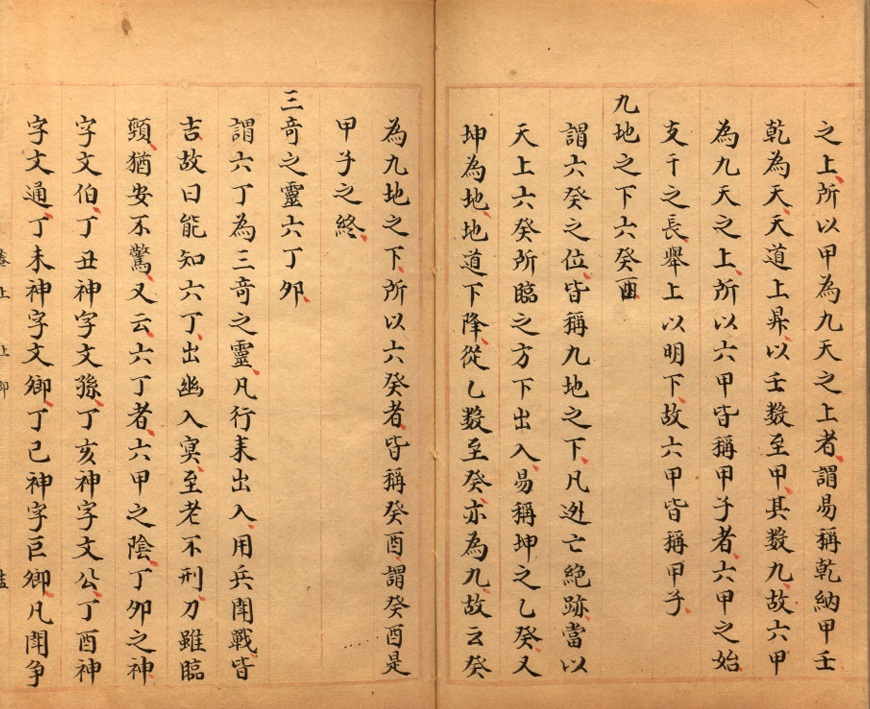 之上所以甲為九天之上者謂易稱乾納甲壬
乾為天天道上昇以壬数至甲其数九故六甲
為九天之上所以六甲皆稱甲子者六甲之始
支干之長舉上以明下故六甲皆稱甲子
九地之下六癸酉
謂六癸之位皆稱九地之下凡迯亡絕跡當以
天上六癸所臨之方下出入易稱坤之乙癸又
坤為地地道下降從乙数至癸亦為九故云癸
為九地之下所以六癸者皆稱癸酉謂癸酉是
甲子之終
三竒之靈六丁卯
謂六丁為三竒之靈凡行耒出入用兵鬦戰皆
吉故曰能知六丁出幽入冥至老不刑刀雖臨
頸猶安不驚又云六丁者六甲之陰丁卯之神
字文伯丁丑神字文孫丁亥神字文公丁酉神
字文通丁未神字文卿丁巳神字巨卿凡鬦争